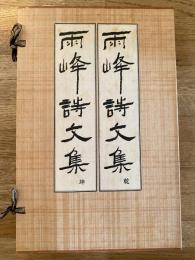 雨峰詩文集 乾
雨峰詩文集 坤